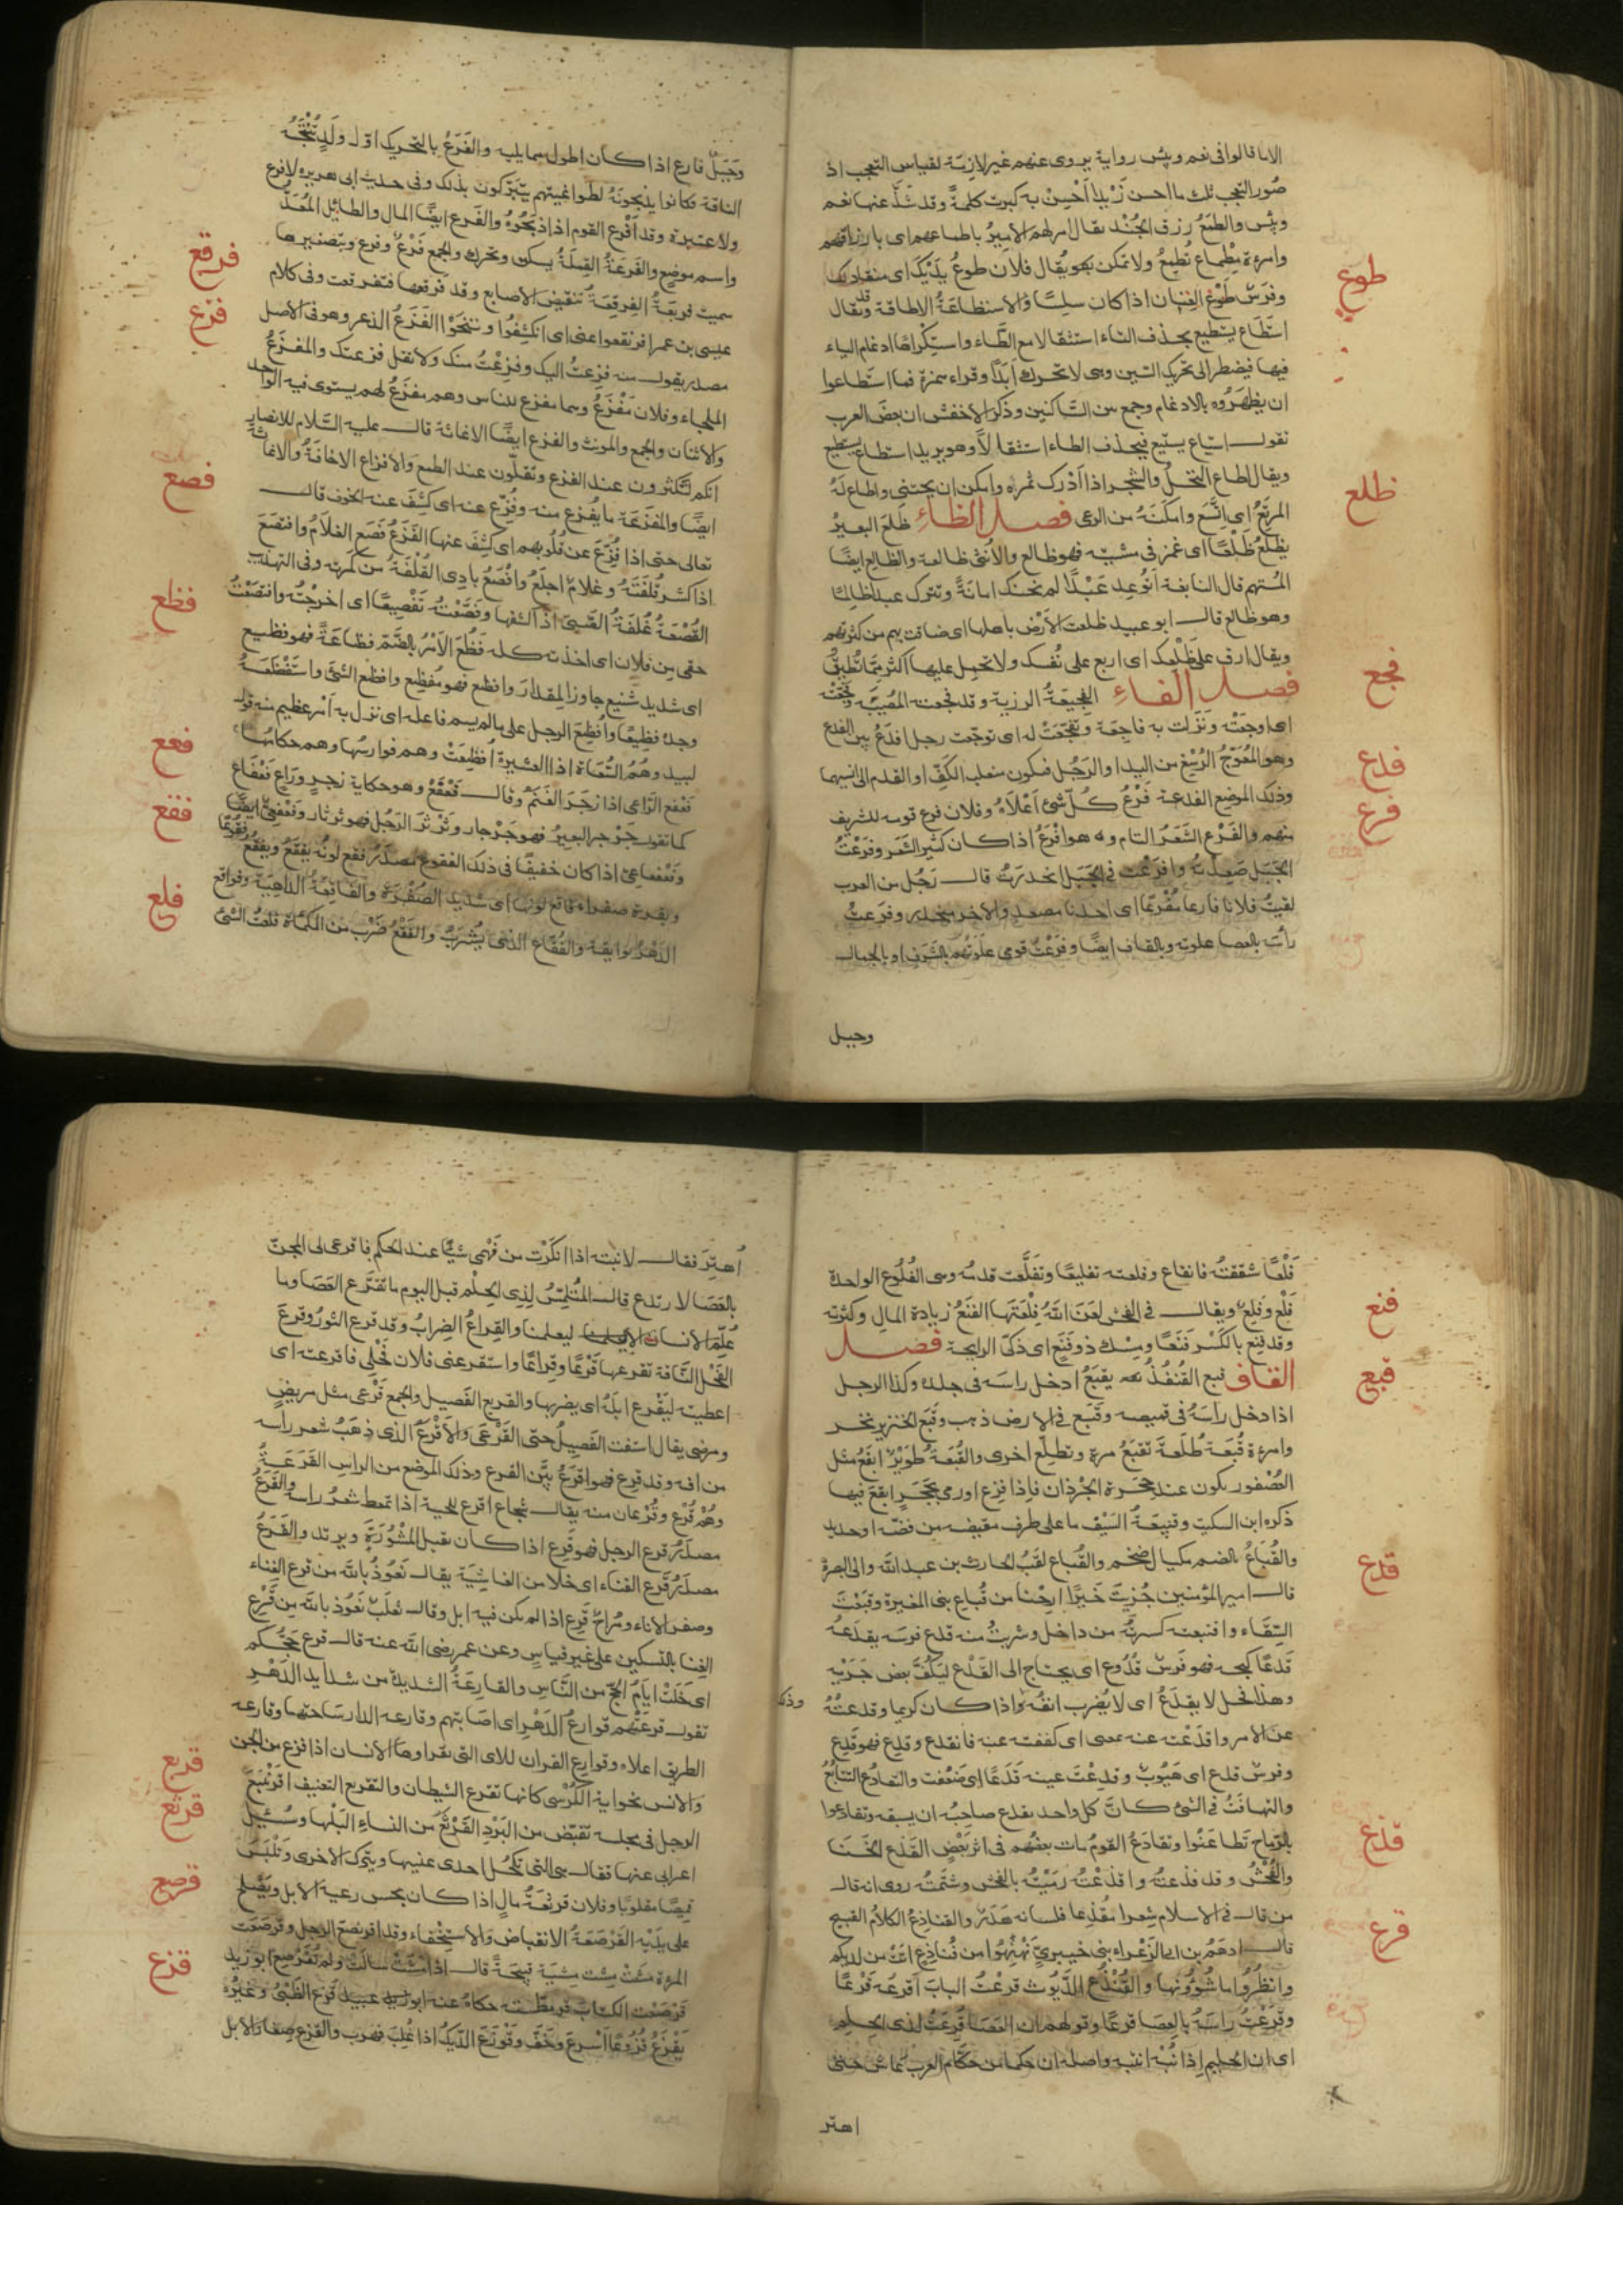 الا ما قالوا فى نعم وبئس رواية يروى عنهم غير لازمة لقياس التعجب اذ
صُور التعجب ثلث ما احسن زيدا اَحْسِنْ به كبرت كلمةً وقد شذَّ عنها نعم
وبئس والطبَعُ رزق الجُنْد يقال امر لهم الامير باطماعهم اى بارزاقهم
وامرءة مِطْماع تُطمِعُ ولا تمكن ويقال فلان طوعُ يدَيْك اى منقاد لك
وفرَسٌ طَوْعُ العِنان اذا كان سلِسًا والاستطاعَةُ الاطاقة وقد يقال
اسْطاع يسطيع بحذف التاء استثقالا مع الطّاء واستكراهًا ادغام التاء
فيها فيضطر الى تحريك السّين وهى لا تحرك اَبَدًا وقراء حمزة فما اسطاعوا
ان يظهَرُوه بالادغام وجمع بين السّاكنين وذكر الاخفش ان بعضَ العرب
تقول استاع يستيع فيحذف الطاء استثقالاً وهو يريد استطاع يستطيع
ويقال اطاع النخلُ والشجر اذا اَدْرك ثمره وامكن ان يجتنى واطاع لهُ
المرتَعُ اى اتَّسَع وامكنَهُ من الرعى فصل الظاءِ ظلَعَ البعيرُ
يظلَعُ ظَلْعًا اى غمز فى مشيه فهو ظالع والانثى ظالعة والظالع ايضًا
المُتّهم قال النابغة اتُوعِد عَبْدًا لم يخنك امانةً وتترك عبدا ظالمًا
وهو ظالع قال ابو عبيد ظلعت الاَرْض باهلها اى ضاقت بهم من كثرتهم
ويقال ارق على ظَلْعِك اى اربع على نفسك ولا تحمِل عليها اكثر مِمّا تُطِيقُ
فصل الفاءِ الفجيعَةُ الرزية وقد فجعته المُصيبَةُ وفجّعَتْهُ
اى اوجعَتْه ونزَلت به فاجِعَة وتفجّعَتْ له اى توجّعت رجل افدَعُ بيّن الفدع
وهو المُعوَجّ الرُسْغ من اليد او الرّجُل فيكون منقلب الكَفِّ او القدم الى انسيهما
وذلك الموضع الفدعة فَرْعُ كُلّ شئ اَعْلاهُ وفلان فرع قومه للشريف
منهم والفَرْع الشَعَرُ التام وهو افْرَعُ اذا كان كثيرَ الشَعَر وفرَعْتُ
الجَبَل صَعِدْتهُ وافرَعْتُ فى الجَبَل انحدَرْتُ قال رَجُل من العرب
لقيتُ فلانا فارِعا مُفْرعًا اى احدنا مصعد والاخر منحدر وفرَعتُ
رأسَه بالعصا علوته وبالقاف ايضًا وفرَعْتُ قومى علَوْتُهُم بالشَّرَفِ او بالجمال
وجبل
طوع
ظلع
فجع
فدع
فرع
وجَبَلٌ فارع اذا كان اطول مما يليه والفَرَعُ بالتحريك اوّل ولَدٍ تُنْتِجُهُ
الناقة فكانوا يذبحونَهُ لطواغيتهم يتبرّكون بذلك وفى حديث ابى هريره لا فرع
ولا عتيرة وقد اَفْرع القوم اذا ذبَحُوهُ والفَرع ايضًا المال والطائل المُعَدُّ
واسم موضع والفَرَعَةُ القمِلَةُ يسكن ويحرك والجمع فَرْعٌ وفرع وبتصغيرها
سميت فريعَةُ الفرقعَةُ تنقيض الاصابع وقد فرقعها فتفرقعت وفى كلام
عيسى بن عمر افرنقعوا عنى اى انكشِفُوا وتنحّوْا الفَزَعُ الذعر وهو فى الاصل
مصدر يقول منه فزِعتُ اليك وفزِعْتُ منك ولا تقل فزعتك والمفزَعُ
الملجاء وفلان مَفْزَعٌ وهما مفزع للناس وهم مفزَعٌ لهم يستوى فيه الواحد
والاثنان والجمع والمونث والفزع ايضًا الاغاثة قال عليه السّلام للانصار
انكم لتكثرون عند الفزع وتقلّون عند الطمع والافزاع الاخافةُ والاغاثة
ايضًا والمفزَعَة ما يُفزع منه وفُزِّع عنه اى كشِفَ عنه الخوف قال
تعالى حتى اذا فُزّعَ عن قلُوبهم اى كشِفَ عنها الفَزَعُ فصَع الغلاَمُ وافتصَعَ
اذا كشر قُلفَتَهُ وغلامٌ اجلَعُ وافْصَعُ بادِى القُلفَةُ من كمَرته وفى التهذيب
القُصْعَةُ غُلفَةُ الصّبىّ اذا اكشفها وفصَّعْتُهُ تَفْصِيعًا اى اخرجْتُه وافتَصَعْتُ
حقى من فلان اى اخذته كله فَظُعَ الاَمْرُ بالضّمّ فظاعَةً فهو فظيع
اى شديد شنيع جاوز المِقدارَ وافظع فهو مُفظِع وافظع الشئَ واستَفْظَعَهُ
وجدهُ فظيعًا واُفظِعَ الرجل على ما لم يسم فاعله اى نزل به اَمر عظيم منه قول
لبيد وهُمُ السُّعاة اذا العشيرةُ اُفظِعَتْ وهم فوارسُها وهم حكامُها
فعْفع الرّاعى اذا زجَرَ الغَنَم وقال فَعْفَعْ وهو حكاية زجرٍ ورَاعٍ فَعْفاع
كما تقول جَرْجر البعيرُ فهو جَرْجار وثَرْثَرَ الرَّجُل فهو ثرثار وفَعْفعىٌّ ايضًا
وفَعْفعانىّ اذا كان خفيفًا فى ذلك الفقوع مصدَرُ فقع لونُه يفقَعُ ويفقُع
وبقرة صفراء فاقع لونها اى شديد الصُفْرَة والفاقِعَةُ الداهيَة وفواقع
الدَهْرُ بوايقه والفُقّاع الذى يُشرَبُ والفَقْعُ ضَرْب من الكمأة فلعْتُ الشئَ
فرقع
فزع
فصع
فظع
فعع
فقع
فلع
فَلْعًا شققتهُ فانفلع وفلعته تفليعًا وتفلَّعت قدمُه وهى الفُلُوع الواحدة
فَلْع وفِلع ويقال فى الفحش لعَنَ اللّهُ فِلْعَتَها الفَنَعُ زيادة المال وكثرته
وقد فنِع بالكسْر فَنَعًا ومِسْك ذو فَنَع اى ذكىّ الرايحة فصل
القاف قبع القُنفُذُ يقبَعُ ادخل راسَه فى جلده وكذا الرجل
اذا دخل رأسَهُ فى قميصه وقَبَع فى الارض ذهب وقَبَع الخنزير نخر
وامرءة قُبعَة طُلعَةٌ تقبَعُ مرة وتطلع اخرى والقُبعَةُ طُوَيْرٌ ابقَعُ مثل
العُصْفور يكون عند حجَرة الجُرْذان فاذا فزِع اورمى بحَجَرٍ ابقعَ فيها
ذكره ابن السكيت وقبِيعَةُ السَيْف ما على طرف مقبضه من فضّة او حديد
والقُبَاعُ بالضم مكيال ضخم والقُباع لقَبُ الحارث بن عبد اللّه والى البصرة
قال امير المؤمنين جُزِيتَ خَيرًا ارِحْنا من قُباع بنى المغيرة وقبَعْتُ
السّقاء واقتبعته كسرتهُ من داخل وشربتُ منه قدع فرسَه يقدَعهُ
قَدعًا كبحه فهو فرَسٌ قَدُوع اى يحتاج الى القَدْع ليَكُفَّ بعض جَرْيه
وهذا فحل لا يقدَعُ اى لا يُضرب انفه واذا كان كريما وقدعتُهُ
عن الامر واقدَعْته عنه بمعنى اى كففته عنه فانقدع وقدِع فهو قدِع
وفرسٌ قدِع اى هَيُوبٌ وقدِعْتَ عينه قَدَعًا اى ضعُفت والتقادُع التتابُعُ
والتهافُتُ فى الشئ كانَّ كل واحد يقدع صاحبُه ان يسبقه وتقادعُوا
بالرّماح تَطاعَنُوا وتقادَعَ القومُ مات بعضُهم فى اثر بَعْضٍ القَذع الخنَا
والفُحْشُ وقد قذعتُه واقذعْتُه رمَيْتُه بالفحش وشتَمتُه روى انه قال
من قال فى الاسلام شِعرا مقُذِعا فلسانه هَدَرٌ والقناذِعُ الكلامُ القبيح
قال ادهَمُ بن ابى الزَعْراء بنى خيبرىٍّ نَهْنِهُوا من قُناذِع اتتْ من لديكم
وانظُرُوا ما شُؤُونها والقُنْذُع الدَّيُوث قرعْتُ البابَ اقرعَه قَرْعًا
وقرعْتُ راسَهُ بالعصا قرعًا وقولهم ان العَصا قُرِعَتْ لذى الحلم
اى ان الحليم اذا نُبّه انتبه واصله ان حكما من حكّام العرب عاش حتى
اهتر
فنع
قبع
قدع
قذع
قرع
اُهترَ فقال لابنته اذا انكَرْت من فَهْمى شيًا عند الحكم فاقرعى لى المجنّ
بالعَصَا لارتدع قال المُتلمّسُ لِذِى الحِلْم قبل اليوم ما تقرَع العَصَا وما
عُلّمَ الانسان الا ليعلمَا والقِراعُ الضِرابُ وقد قرع الثورُ وقرعَ
الفَحْل النّاقة تقرعها قَرْعًا وقِراعًا واستقرعنى فلان فَحْلِى فاقرعته اى
اعطيته ليَقْرع ابلَهُ اى يضربها والقريع الفَصيل والجمع قَرْعى مثل مريضٍ
ومرضى يقال استَنّت الفَصِيلُ حتّى القَرْعَى والاَقْرَعُ الذى ذهَبَ شعر راسه
من افه وقد قرِع فهو اقرَعُ بيّن القرع وذلك الموضع من الراس القَرَعَةُ
وهُمْ قُرْع وقُرْعان منه يقال شجاع اقرع للحية اذا تمعط شعرُ راسه والقَرَعُ
مصدَرُ قرع الرجل فهو قَرِع اذا كان يقبل المَشْوُرَة ويرتد والقَرَعُ
مصدَرُ قَرِع الفِناء اى خلا من الغاشِيَة يقال نَعُوذُ باللّه من قرع الفِناء
وصفر الاناء ومُراحٌ قَرِع اذا لم يكن فيه ابل وقال ثعلَبٌ نَعُوذ باللّه مِن قَرْع
الفِنا بالتسكين على غير قياس وعن عمر رضى اللّه عنه قال قرع حَجُّكم
اى خلَتْ ايامُ الحَجّ من النّاسِ والقارعَةُ الشديدة من شدايد الدَهْر
تقول قرعَتْهم قوارعُ الدَهْرِ اى اصابتهم وقارعه الدار ساحتها وقارعه
الطريق اعلاه وقوارع القران للاى التى يقراوها الانسان اذا فزع من الجن
والانس نحو اية الكُرْسى كانها تقرع الشيطان والتقريع التعنيف اقرَنْبَعَ
الرجل فى مجلسه تقبّض من البَرْدِ القَرْثَعُ من النساءِ البَلْها وسُئل
اعرابى عنها فقال هى التى تكحُل احدى عينيها وتترك الاخرى وتَلْبَسُ
قميصًا مقلوبًا وفلان قرثعَةُ مالٍ اذا كان يحسن رعية الابل ويَصْلح
على يدَيْه القَرْصَعَةُ الانقباض والاستخفاء وقد اقرنصَعَ الرجل وقرصَعت
المرءة مشَتْ مِشيَة قبيحَةً قال اذا مشَتْ سالَتْ ولم تُقَرْصِع ابو زيد
قرْصَعْت الكتابَ قرمطته حكاهُ عنه ابو عبيد قزَعَ الظَبْىُ وغيرُه
يَقْزَعُ قُزُوعًا اَسْرعَ وخَفَّ وقوْزَعَ الدّيكُ اذا غُلِبَ فهرب والقزع صِغارُ الابل
قربع
قرثع
قرصع
قزع